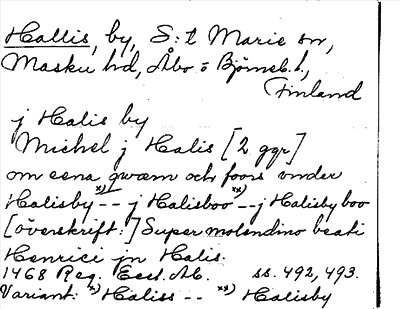 Hallis, by, S:t Marie sn,
Masku hd, Åbo o Björneb. l.,
Finland
j Halis by
Michel j Halis [2 ggr]
om eena qwærn och foors vnder
Halisby *) -- j Halisboo **) -- j Halisby boo
[överskrift:] Super molendino beati
Henrici jn Halis.
1468 Reg. Eccl. Ab. ss. 492, 493.
Variant: *) Haliss -- **) Halisby